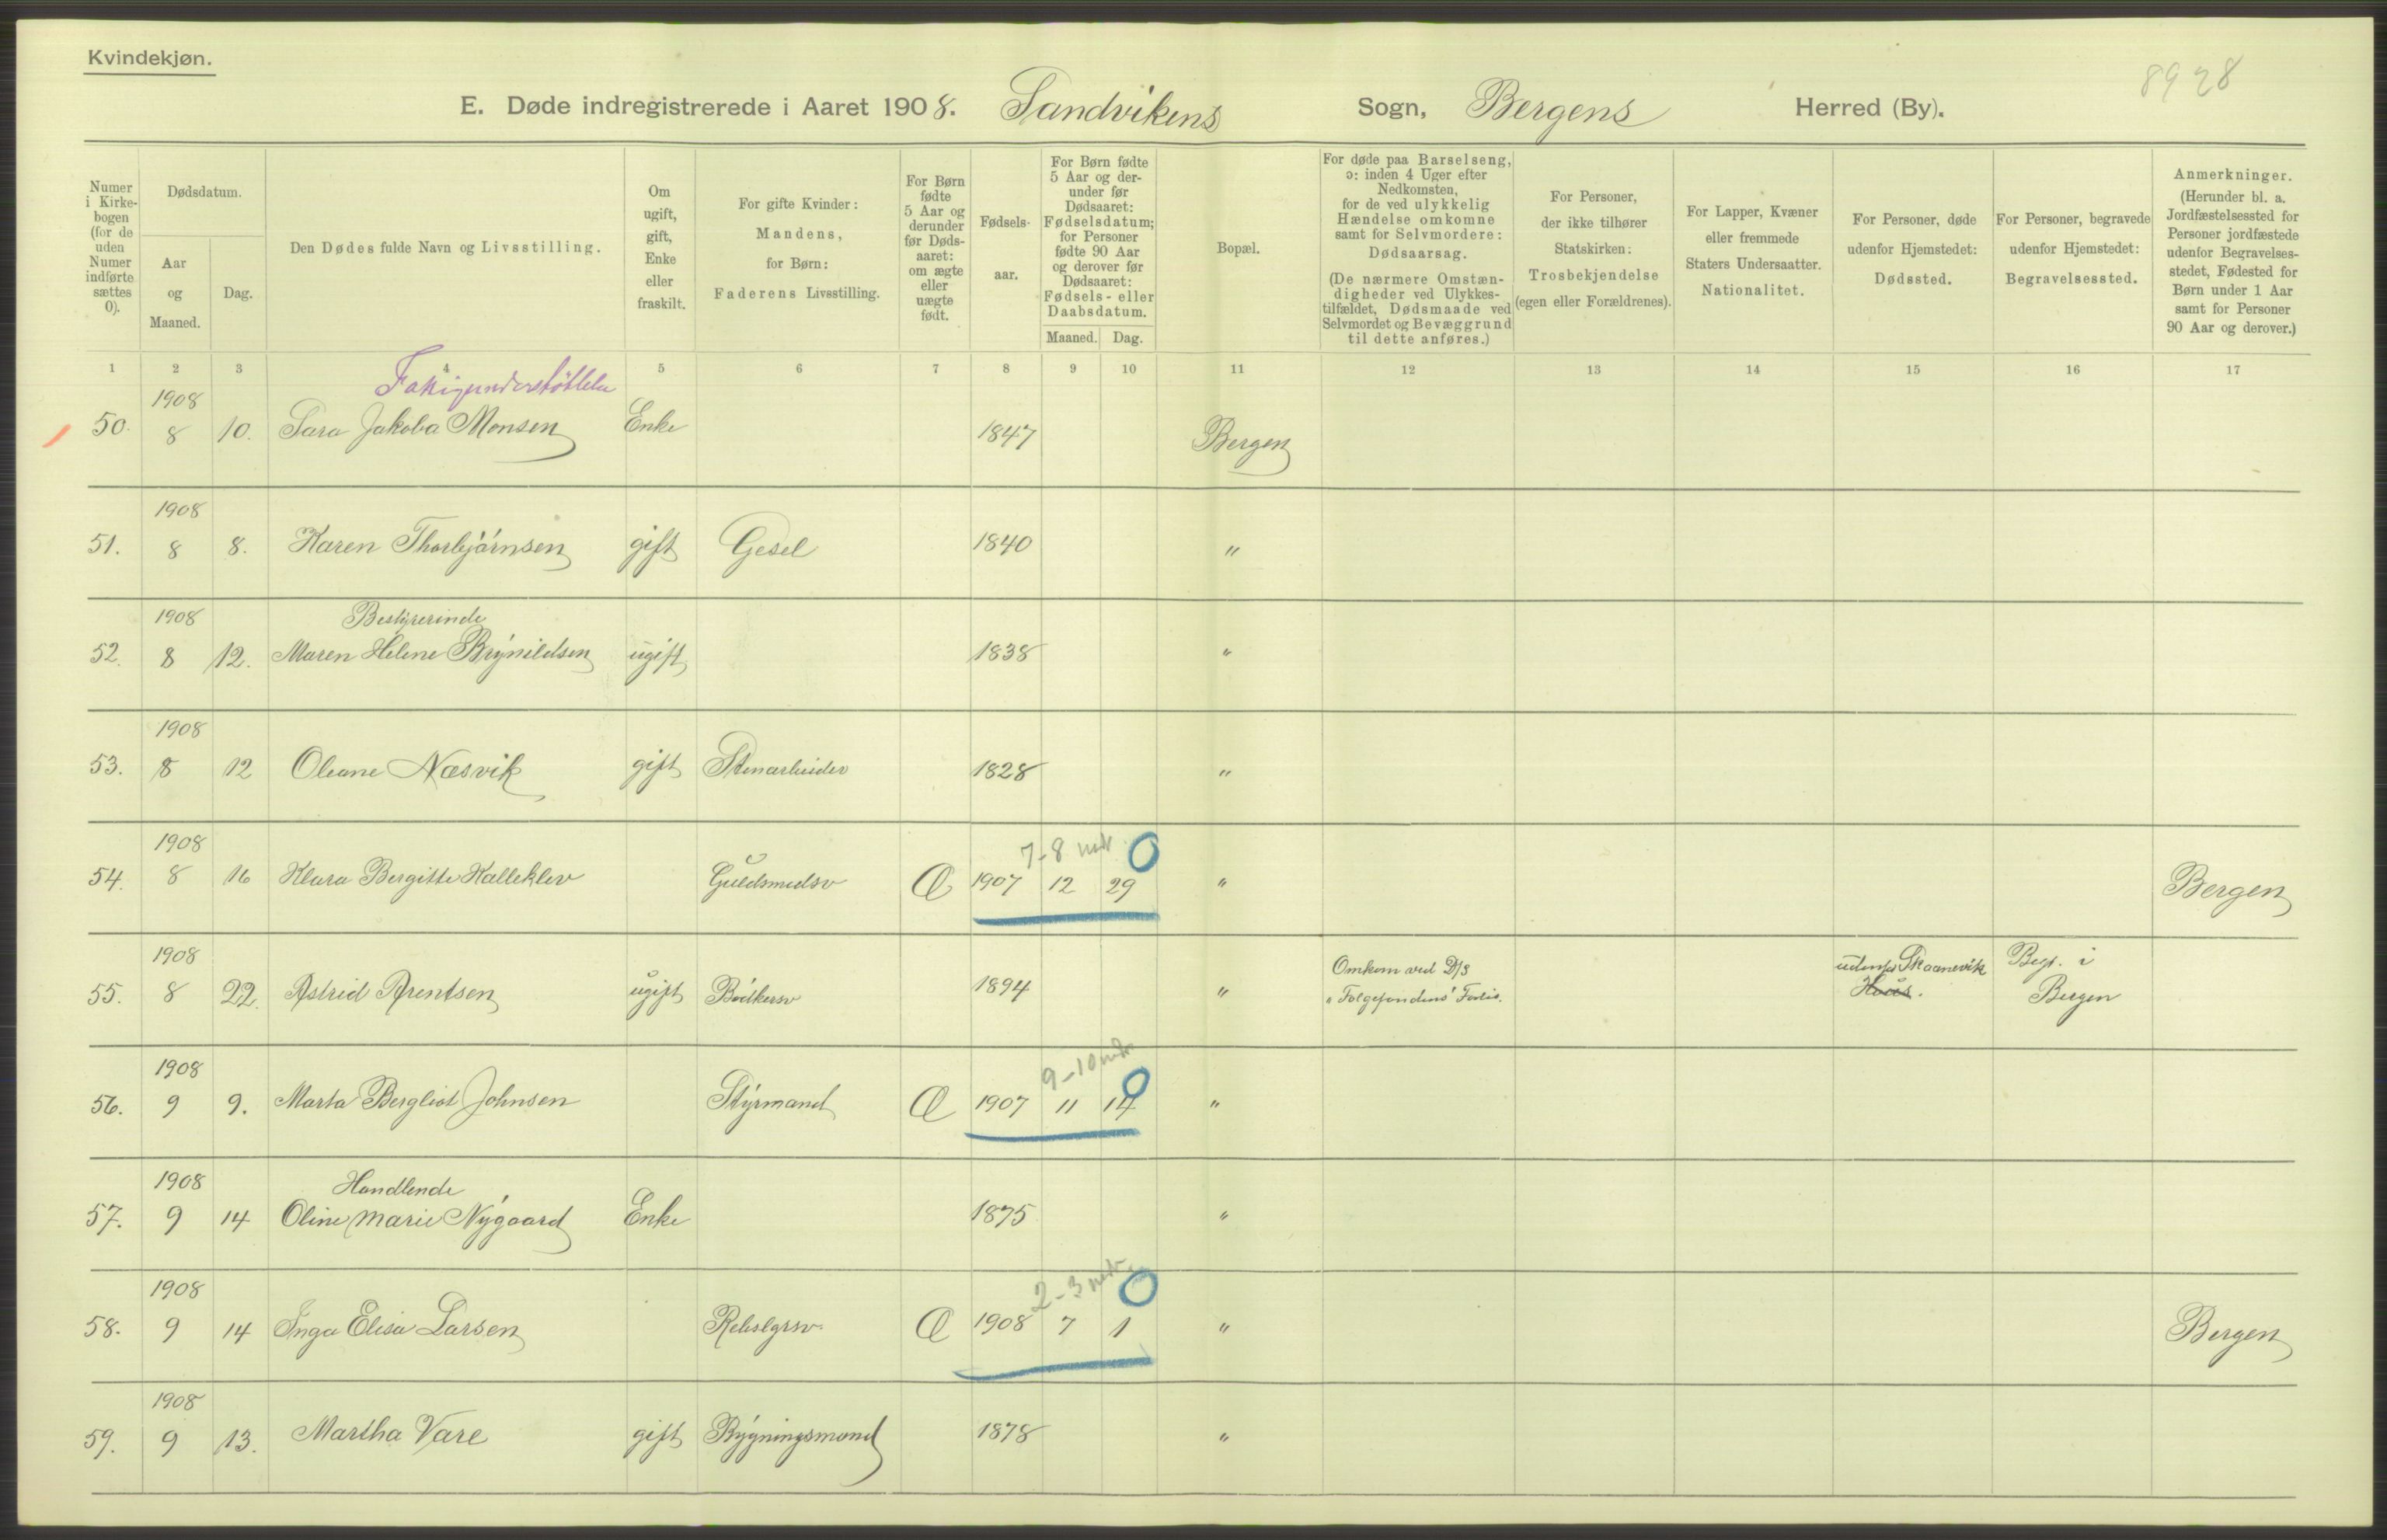 Kvindekjøn.
8928
E. Døde indregistrerede i Aaret 1908. Sandvikens Sogn, Bergens Herred (By).
Numer i Kirkebogen (for de uden Numer indførte sættes 0).
Dødsdatum.
Aar og Maaned.
Dag.
Den Dødes fulde Navn og Livsstilling.
Om ugift, gift, Enke eller fraskilt.
For gifte Kvinder: Mandens, for Børn: Faderens Livsstilling.
For Børn fødte 5 Aar og derunder før Dødsaaret: om ægte eller uægte født.
Fødselsaar.
For Børn fødte 5 Aar og derunder før Dødsaaret: Fødselsdatum; for Personer fødte 90 Aar og derover før Dødsaaret: Fødsels- eller Daabsdatum.
Maaned. Dag.
Bopæl.
For døde paa Barselseng, ɔ: inden 4 Uger efter Nedkomsten, for de ved ulykkelig Hændelse omkomne samt for Selvmordere: Dødsaarsag. (De nærmere Omstændigheder ved Ulykkestilfældet, Dødsmaade ved Selvmordet og Bevæggrund til dette anføres.)
For Personer, der ikke tilhører Statskirken: Trosbekjendelse (egen eller Forældrenes).
For Lapper, Kvæner eller fremmede Staters Undersaatter. Nationalitet.
For Personer, døde udenfor Hjemstedet: Dødssted.
For Personer, begravede udenfor Hjemstedet: Begravelsessted.
Anmerkninger. (Herunder bl. a. Jordfæstelsessted for Personer jordfæstede udenfor Begravelsesstedet, Fødested for Børn under 1 Aar samt for Personer 90 Aar og derover.)
1 2 3 4 5 6 7 8 9 10 11 12 13 14 15 16 17
1908
50. 8 10. Sara Jakoba Monsen Enke 1847 Bergen
1908
51. 8 8. Karen Thorbjørnsen gift Gesel 1840 "
1908 Bestyrerinde
52. 8 12. Maren Helene Brynildsen ugift 1838 "
1908
53. 8 12 Oleane Næsvik gift Stenarbeider 1828 "
1908 7-8 mdr 0
54. 8 16 Klara Bergitte Kalleklev Guldsmedsv Æ 1907 12 29 " Bergen
1908 Omkom ved D/S Skaanevik Begr. i
55. 8 22. Astrid Arentsen ugift Bødkersv 1894 " "Folgefondens" Forlis. Bergen
1908 9-10 mdr 0
56. 9 9. Marta Bergliot Johnsen Styrmand Æ 1907 11 14 "
1908 Handlende
57. 9 14 Oline Marie Nygaard Enke 1875 "
1908 2-3 mdr. 0
58. 9 14 Inga Elisa Larsen Rebslgrsv. Æ 1908 7 1 " Bergen
1908
59. 9 13. Martha Vare gift Bygningsmand 1878 "